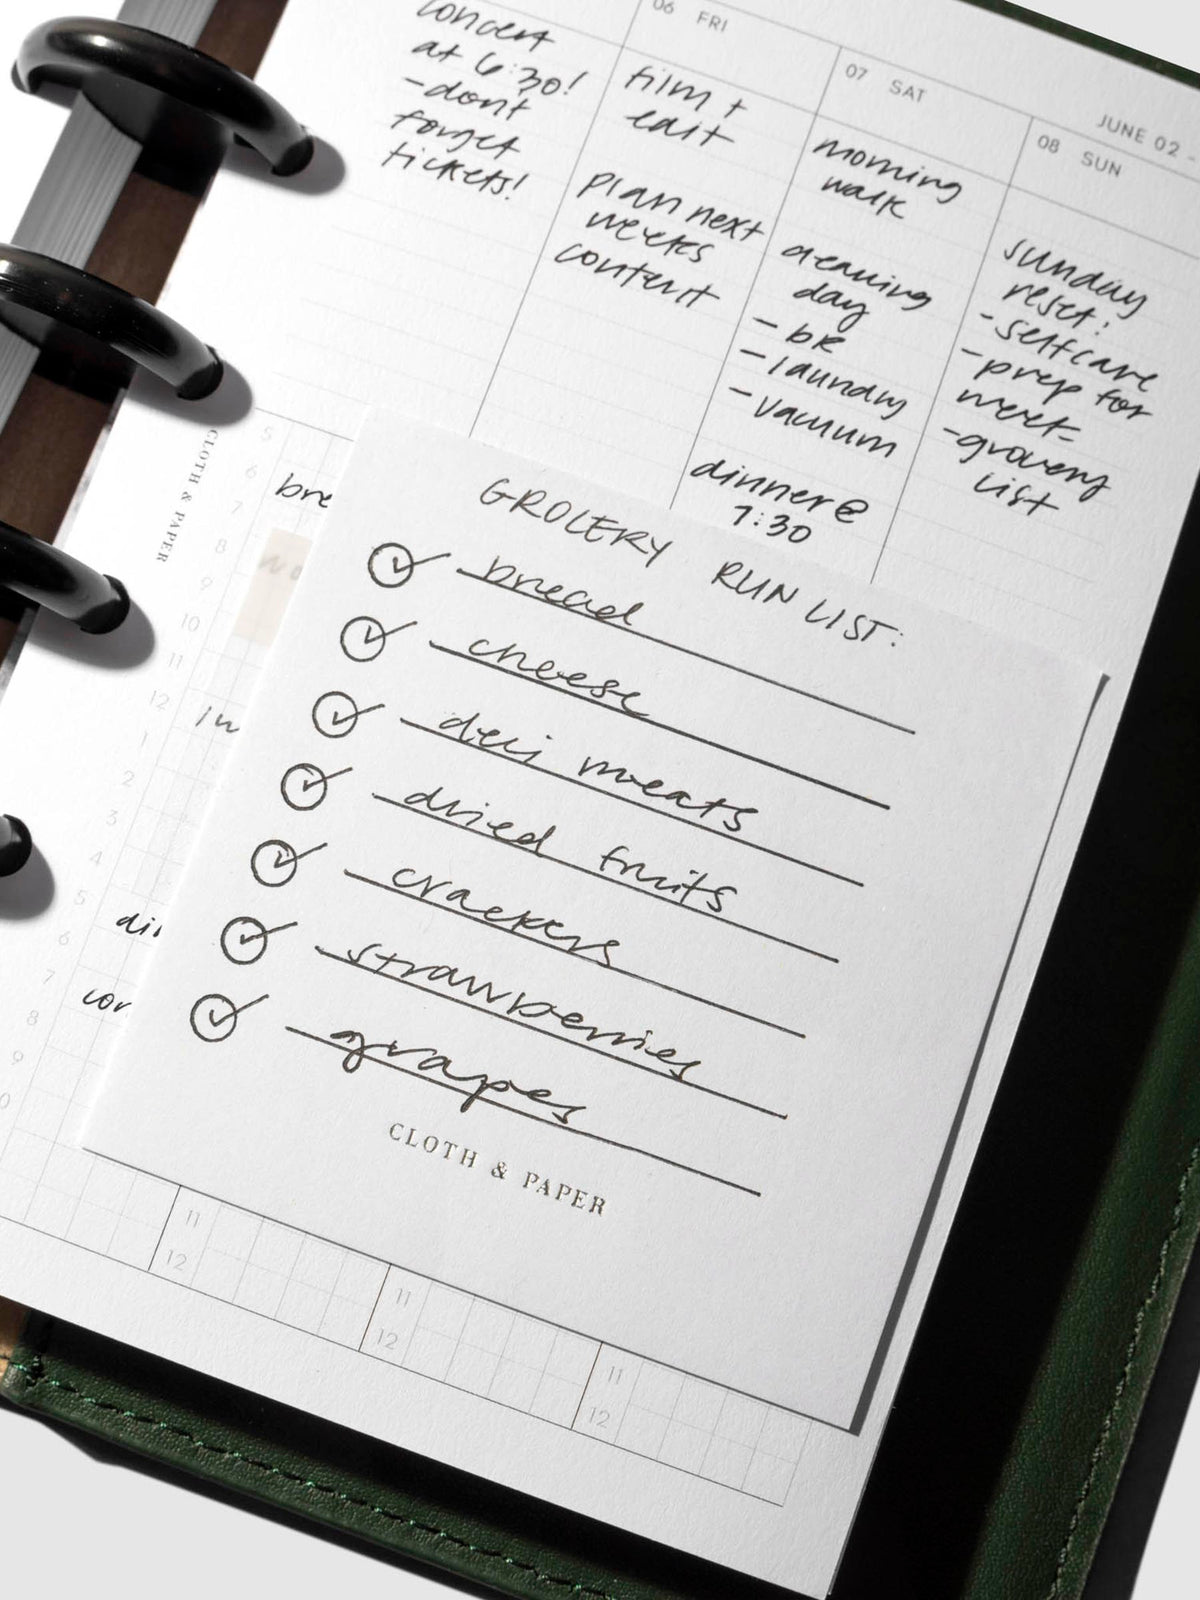 JUNE 02 -
concert
at 6:30!
-dont
forget
tickets!
06 FRI
film +
edit
plan next
weeks
content
07 SAT
morning
walk
cleaning
day
- br
- laundry
- vacuum
dinner @
7:30
08 SUN
sunday
reset:
- selfcare
- prep for
week
- grocery
list
CLOTH & PAPER
5
6
7
8
9
10
11
12
1
2
3
4
5
6
7
8
9
GROCERY RUN LIST:
bread
cheese
deli meats
dried fruits
crackers
strawberries
grapes
CLOTH & PAPER
11
12
11
12
11
12